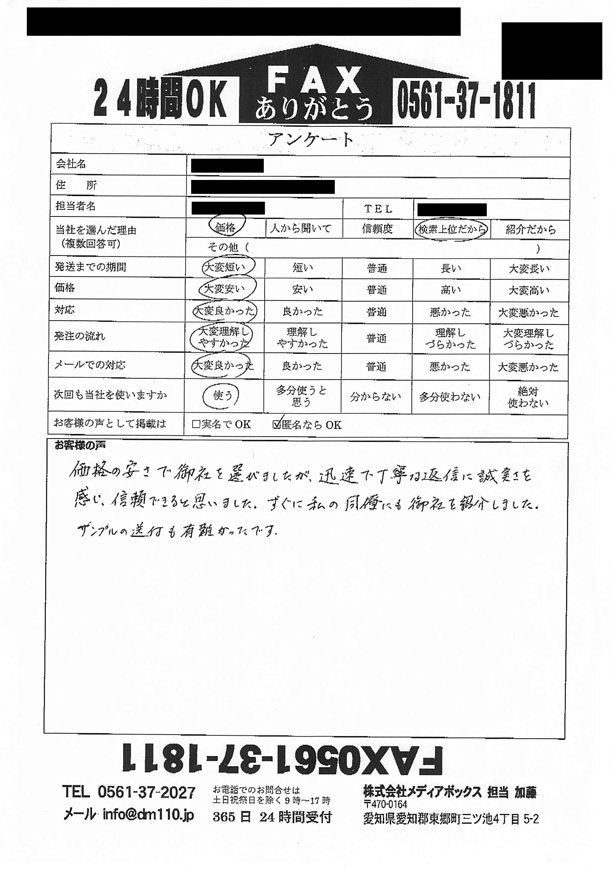 24時間OK
FAX
ありがとう
0561-37-1811
アンケート
会社名
住 所
担当者名 TEL
当社を選んだ理由(複数回答可) 価格 人から聞いて 信頼度 検索上位だから 紹介だから
その他( )
発送までの期間 大変短い 短い 普通 長い 大変長い
価格 大変安い 安い 普通 高い 大変高い
対応 大変良かった 良かった 普通 悪かった 大変悪かった
発注の流れ 大変理解しやすかった 理解しやすかった 普通 理解しづらかった 大変理解しづらかった
メールでの対応 大変良かった 良かった 普通 悪かった 大変悪かった
次回も当社を使いますか 使う 多分使うと思う 分からない 多分使わない 絶対使わない
お客様の声として掲載は □実名でOK ☑匿名ならOK
お客様の声
価格の安さで御社を選びましたが、迅速で丁寧な返信に誠実さを
感じ、信頼できると思いました。すぐに私の同僚にも御社を紹介しました。
サンプルの送付も有難かったです.
FAX0561-37-1811
TEL 0561-37-2027
メール info@dm110.jp
お電話でのお問合せは
土日祝祭日を除く9時〜17時
365日24時間受付
株式会社メディアボックス 担当 加藤
〒470-0164
愛知県愛知郡東郷町三ツ池4丁目5-2